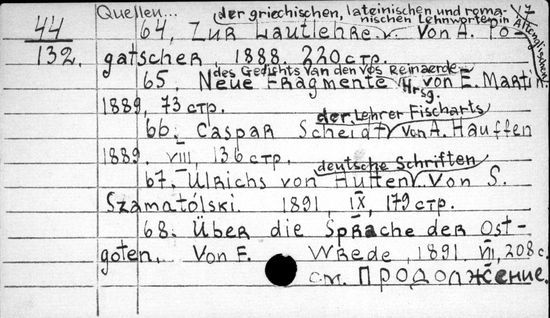 Quellen... der griechischen, lateinischen und roma-
nischen Lehnworte in Altenglischen
44 64, Zur Lautlehre V. Von A. Po-
132. gatscher, 1888. 220 стр.
des Gedichts Van den Vos Reinaerde
65. Neue Fragmente Hrsg. von E. Martin.
1889, 73 стр.
der Lehrer Fischarts
66. Caspar Scheidt, Von A. Hauffen
1889. VIII, 136 стр.
deutsche Schriften
67. Ulrichs von Hutten. Von S.
Szamatólski. 1891, IX, 179 стр.
68. Über die Sprache der Ost-
goten. Von F. Wrede, 1891. VII, 208 с.
см. Продолжение.